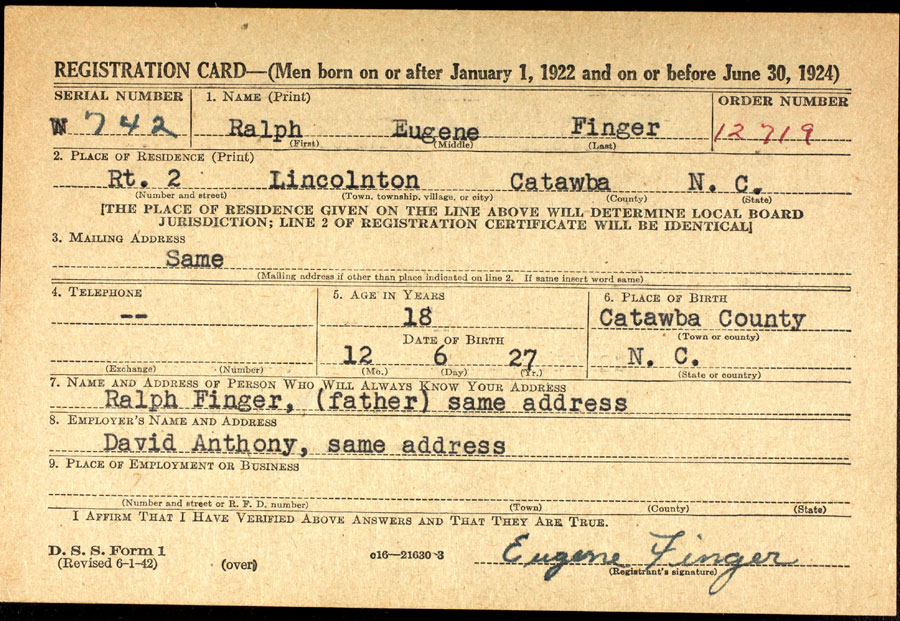 REGISTRATION CARD—(Men born on or after January 1, 1922 and on or before June 30, 1924)
SERIAL NUMBER 1. NAME (Print) ORDER NUMBER
W 742 Ralph Eugene Finger 12719
(First) (Middle) (Last)
2. PLACE OF RESIDENCE (Print)
Rt. 2 Lincolnton Catawba N. C.
(Number and street) (Town, township, village, or city) (County) (State)
[THE PLACE OF RESIDENCE GIVEN ON THE LINE ABOVE WILL DETERMINE LOCAL BOARD
JURISDICTION; LINE 2 OF REGISTRATION CERTIFICATE WILL BE IDENTICAL]
3. MAILING ADDRESS
Same
(Mailing address if other than place indicated on line 2. If same insert word same)
4. TELEPHONE 5. AGE IN YEARS 6. PLACE OF BIRTH
-- 18 Catawba County
DATE OF BIRTH (Town or county)
12 6 27 N. C.
(Exchange) (Number) (Mo.) (Day) (Yr.) (State or country)
7. NAME AND ADDRESS OF PERSON WHO WILL ALWAYS KNOW YOUR ADDRESS
Ralph Finger, (father) same address
8. EMPLOYER'S NAME AND ADDRESS
David Anthony, same address
9. PLACE OF EMPLOYMENT OR BUSINESS
(Number and street or R. F. D. number) (Town) (County) (State)
I AFFIRM THAT I HAVE VERIFIED ABOVE ANSWERS AND THAT THEY ARE TRUE.
D. S. S. Form 1
(Revised 6-1-42) (over) c16—21630-3 Eugene Finger
(Registrant's signature)